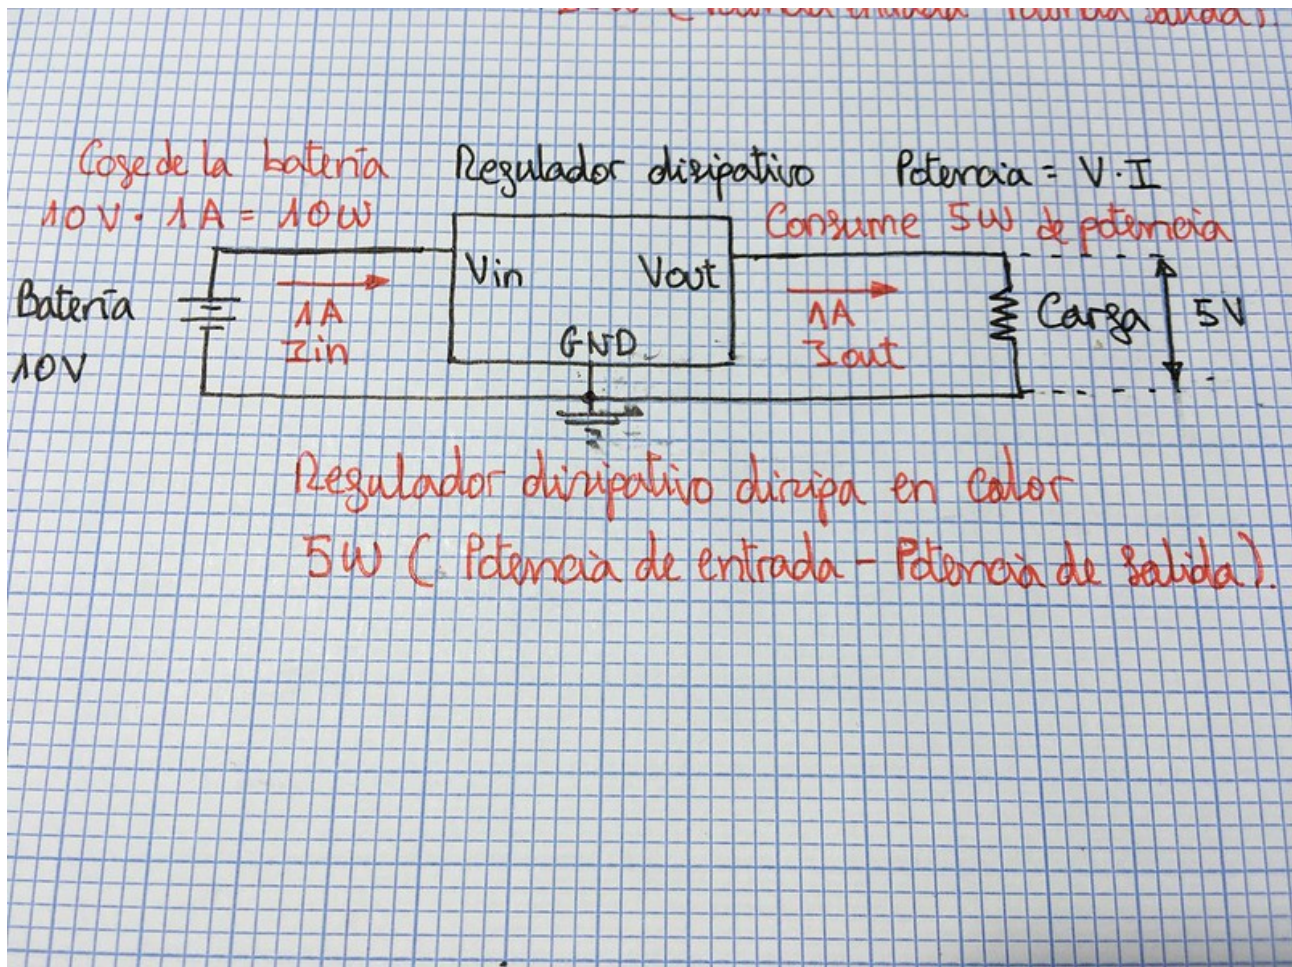 Coge de la batería
10V · 1A = 10W
Regulador disipativo
Potencia = V·I
Consume 5W de potencia
Batería
10V
1A
Iin
Vin
Vout
GND
1A
Iout
Carga
5V
Regulador disipativo disipa en calor
5W (Potencia de entrada - Potencia de salida).